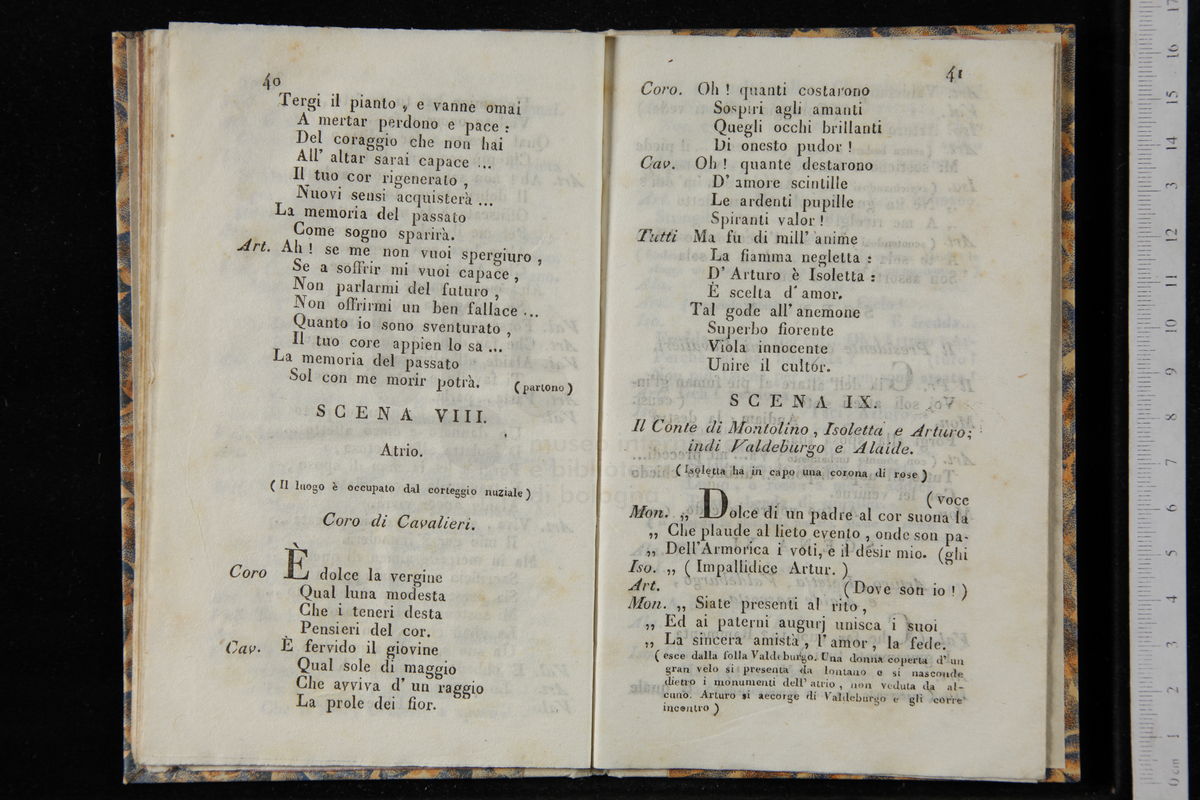 40
Tergi il pianto, e vanne omai
A mertar perdono e pace:
Del coraggio che non hai
All' altar sarai capace ...
Il tuo cor rigenerato,
Nuovi sensi acquisterà ...
La memoria del passato
Come sogno sparirà.
Art. Ah! se me non vuoi spergiuro,
Se a soffrir mi vuoi capace,
Non parlarmi del futuro,
Non offrirmi un ben fallace ...
Quanto io sono sventurato,
Il tuo core appien lo sa ...
La memoria del passato
Sol con me morir potrà. (partono)
SCENA VIII.
Atrio.
(Il luogo è occupato dal corteggio nuziale)
Coro di Cavalieri.
Coro È dolce la vergine
Qual luna modesta
Che i teneri desta
Pensieri del cor.
Cav. È fervido il giovine
Qual sole di maggio
Che avviva d' un raggio
La prole dei fior.
41
Coro. Oh! quanti costarono
Sospiri agli amanti
Quegli occhi brillanti
Di onesto pudor!
Cav. Oh! quante destarono
D' amore scintille
Le ardenti pupille
Spiranti valor!
Tutti Ma fu di mill' anime
La fiamma negletta:
D' Arturo è Isoletta:
È scelta d' amor.
Tal gode all' anemone
Superbo fiorente
Viola innocente
Unire il cultór.
SCENA IX.
Il Conte di Montolino, Isoletta e Arturo;
indi Valdeburgo e Alaide.
(Isoletta ha in capo una corona di rose)
(voce
Mon. „ Dolce di un padre al cor suona la
„ Che plaude al lieto evento, onde son pa-
„ Dell'Armorica i voti, e il desir mio. (ghi
Iso. „ (Impallidice Artur.)
Art. (Dove son io!)
Mon. „ Siate presenti al rito,
„ Ed ai paterni augurj unisca i suoi
„ La sincera amistà, l'amor, la fede.
(esce dalla folla Valdeburgo. Una donna coperta d' un
gran velo si presenta da lontano e si nasconde
dietro i monumenti dell' atrio, non veduta da al-
cuno. Arturo si accorge di Valdeburgo e gli corre
incontro)
museo inter
e bibliote
di bologna
0 cm 1 2 3 4 5 6 7 8 9 10 11 12 13 14 15 16 17